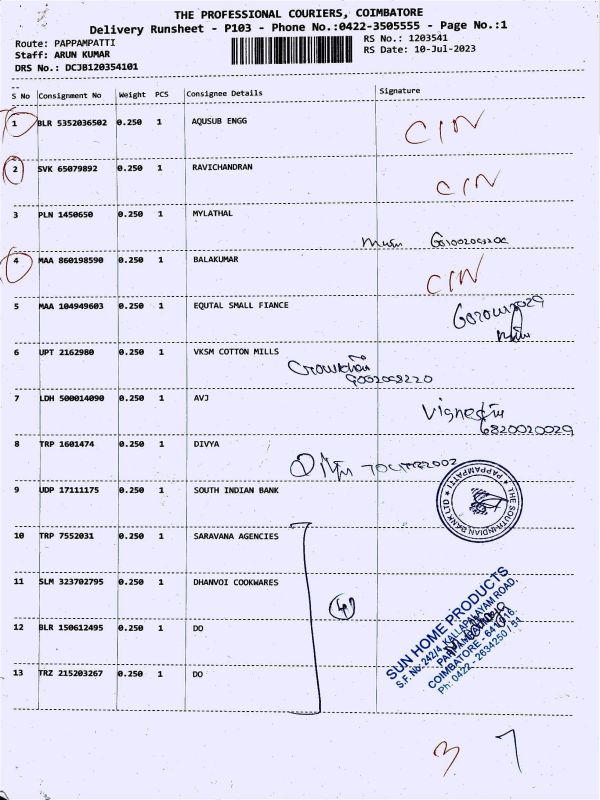 THE PROFESSIONAL COURIERS, COIMBATORE
Delivery Runsheet - P103 - Phone No.:0422-3505555 - Page No.:1
Route: PAPPAMPATTI
RS No.: 1203541
Staff: ARUN KUMAR
RS Date: 10-Jul-2023
DRS No.: DCJB120354101
S No Consignment No Weight PCS Consignee Details Signature
1 BLR 5352036502 0.250 1 AQUSUB ENGG CIN
2 SVK 65079892 0.250 1 RAVICHANDRAN CIN
3 PLN 1450650 0.250 1 MYLATHAL
4 MAA 860198590 0.250 1 BALAKUMAR CIN
5 MAA 104949603 0.250 1 EQUTAL SMALL FIANCE
6 UPT 2162980 0.250 1 VKSM COTTON MILLS
7 LDH 500014090 0.250 1 AVJ
6820020029
8 TRP 1601474 0.250 1 DIVYA
9 UDP 17111175 0.250 1 SOUTH INDIAN BANK
THE SOUTH INDIAN BANK LTD * PAPPAMPATTI *
10 TRP 7552031 0.250 1 SARAVANA AGENCIES
11 SLM 323702795 0.250 1 DHANVOI COOKWARES
12 BLR 150612495 0.250 1 DO
13 TRZ 215203267 0.250 1 DO
SUN HOME PRODUCTS
S.F. No. 242/4, KALLAPALAYAM ROAD,
COIMBATORE - 641 016.
Ph: 0422 - 2634250 / 51
3 7